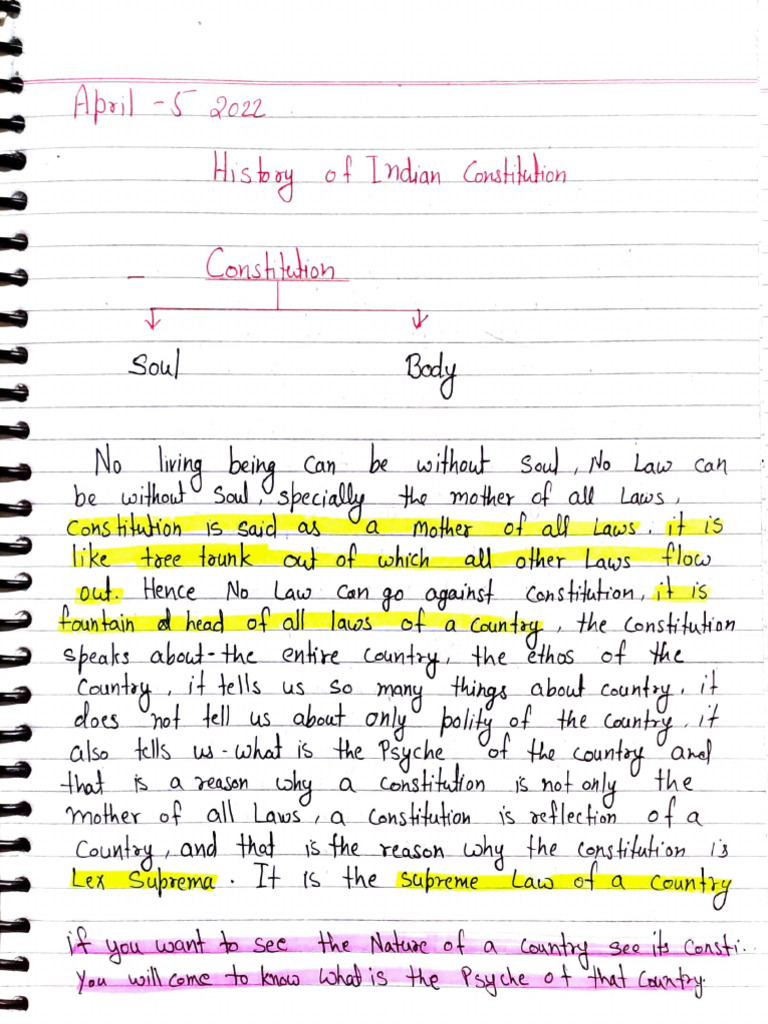 April - 5 2022
History of Indian Constitution
Constitution
Soul Body
No living being can be without soul, No Law can
be without soul, specially the mother of all Laws,
Constitution is said as a mother of all Laws. it is
like tree trunk out of which all other Laws flow
out. Hence No Law can go against constitution, it is
fountain head of all laws of a country, the constitution
speaks about the entire country, the ethos of the
country, it tells us so many things about country. it
does not tell us about only polity of the country, it
also tells us - what is the Psyche of the country and
that is a reason why a constitution is not only the
mother of all Laws, a constitution is reflection of a
country, and that is the reason why the constitution is
Lex Suprema. It is the supreme Law of a country
if you want to see the Nature of a country see its Consti.
You will come to know what is the Psyche of that country.